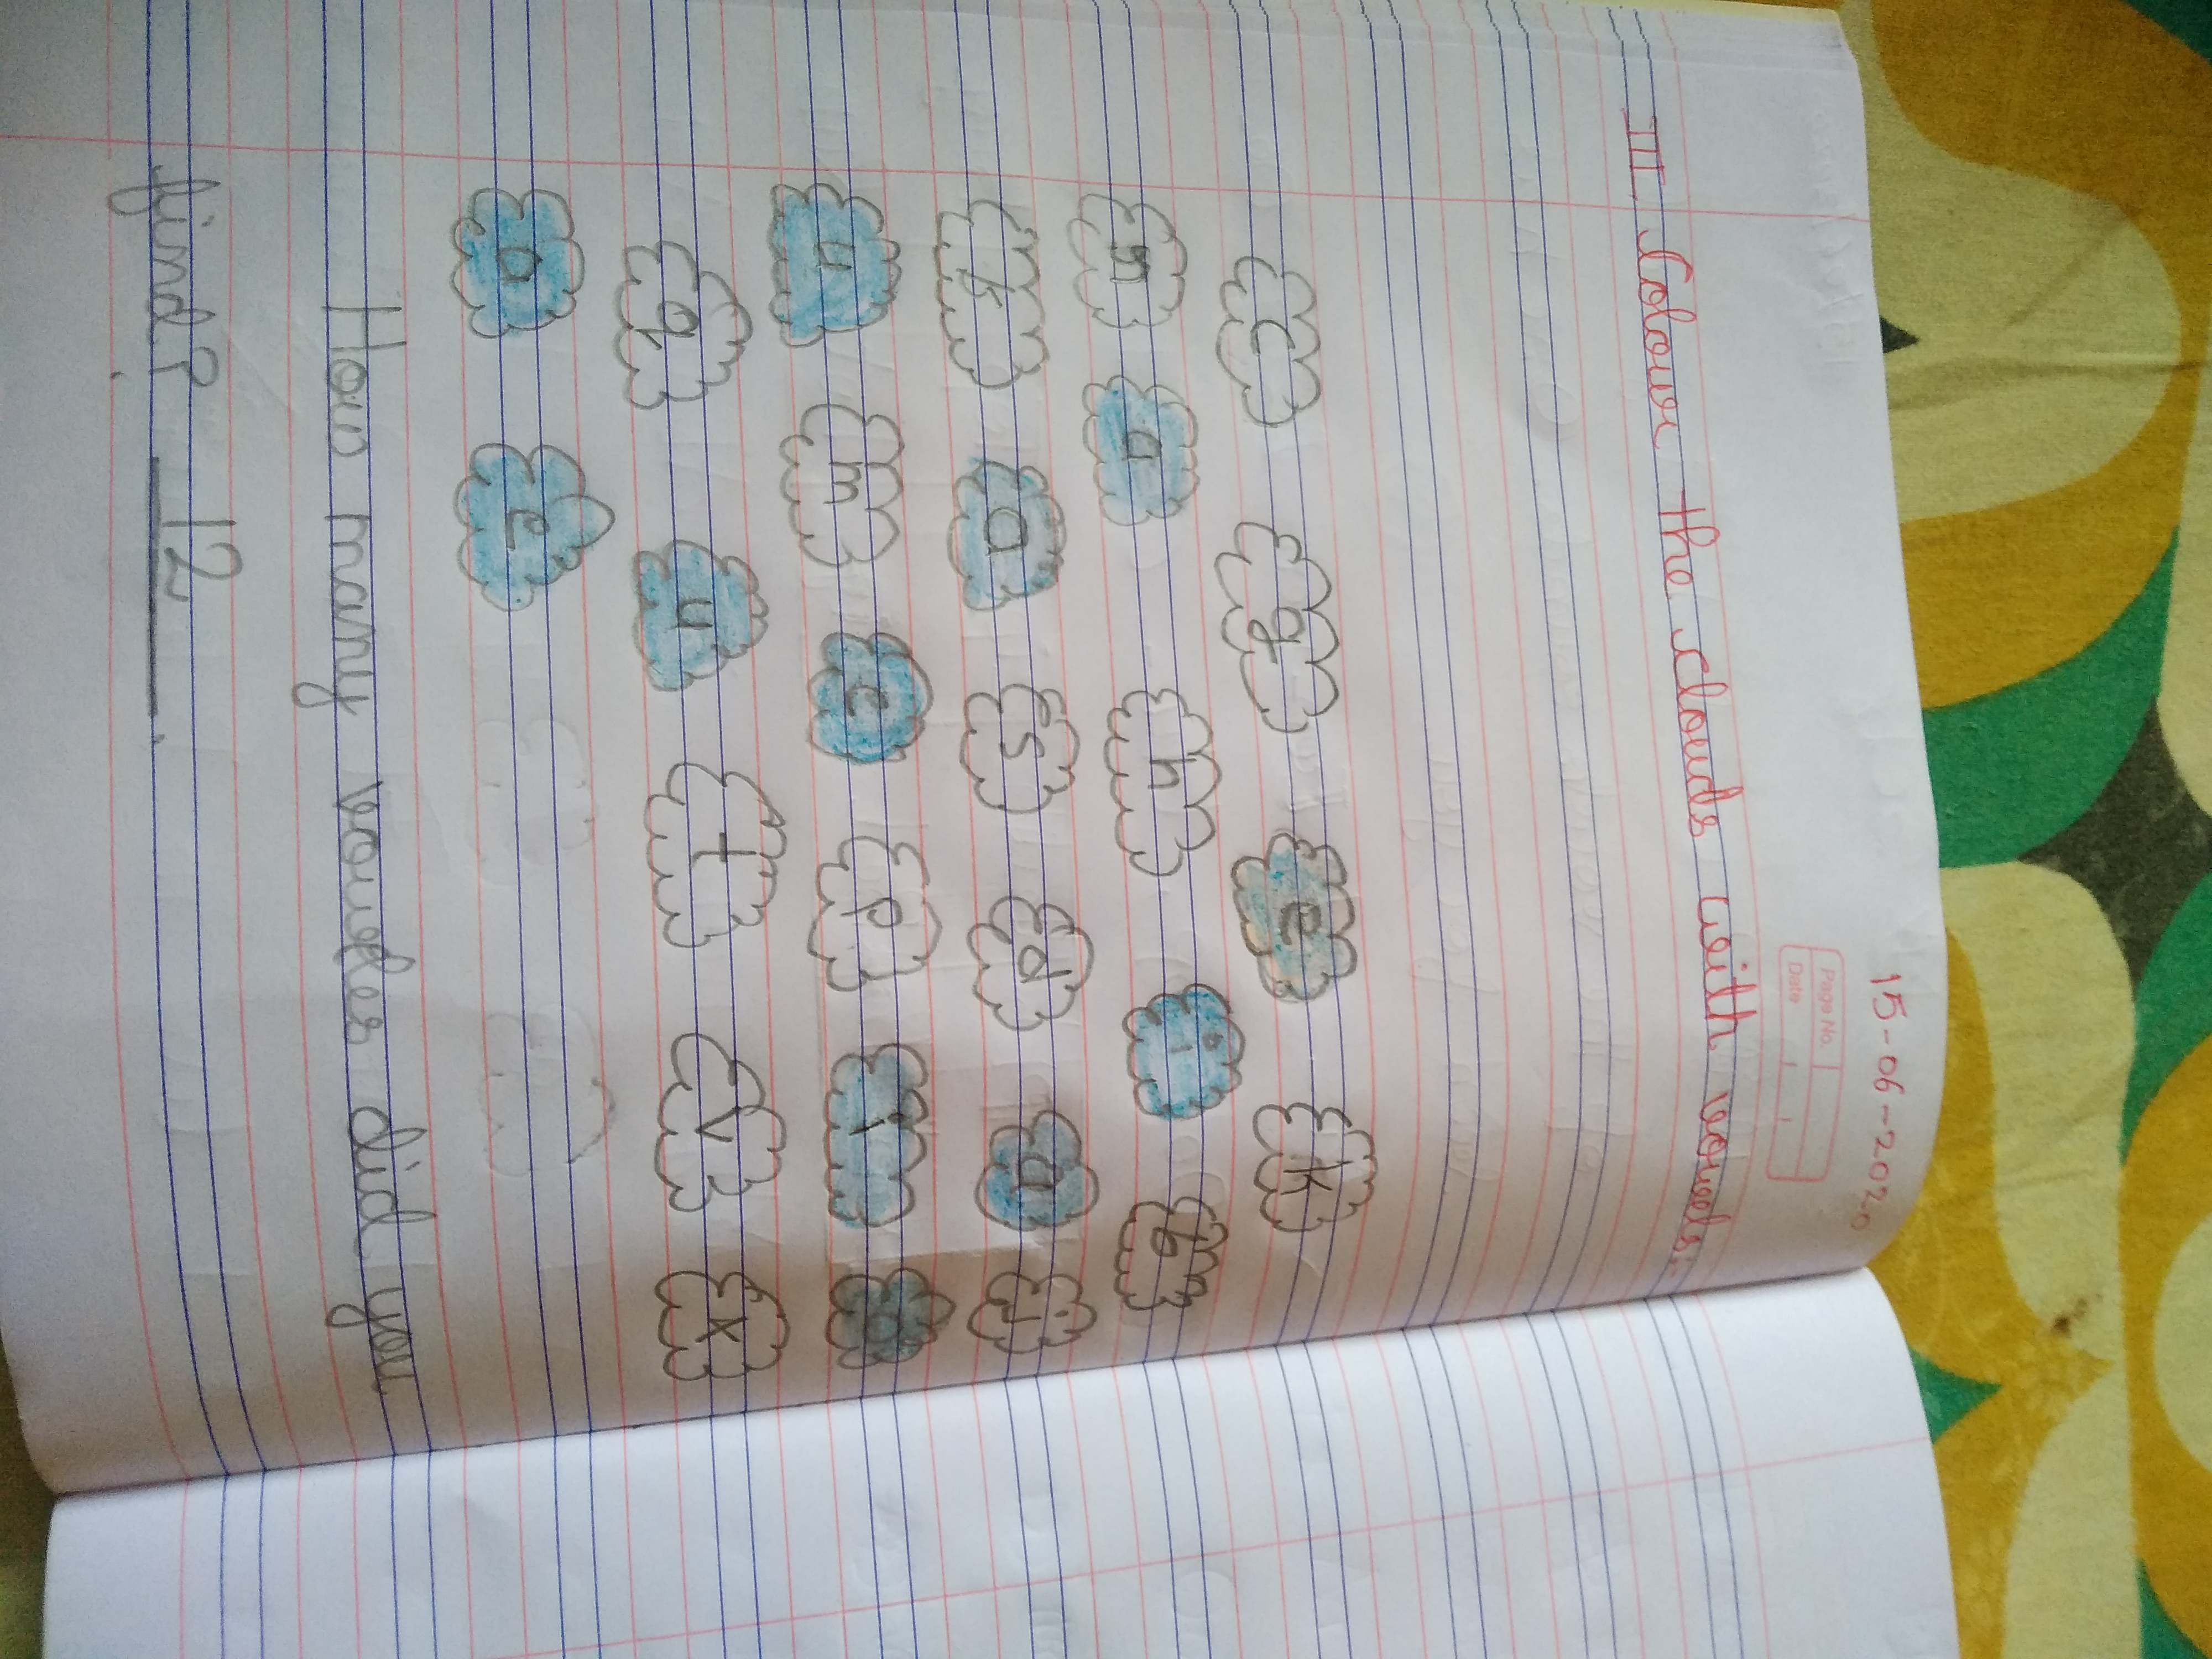 15-06-2020
Page No.
Date
III. Colour the clouds with vowels:-
c g e k
n a h i b
f a s d a j
u m e p i o
q u t v x
o e
How many voweles did you
find? 12.